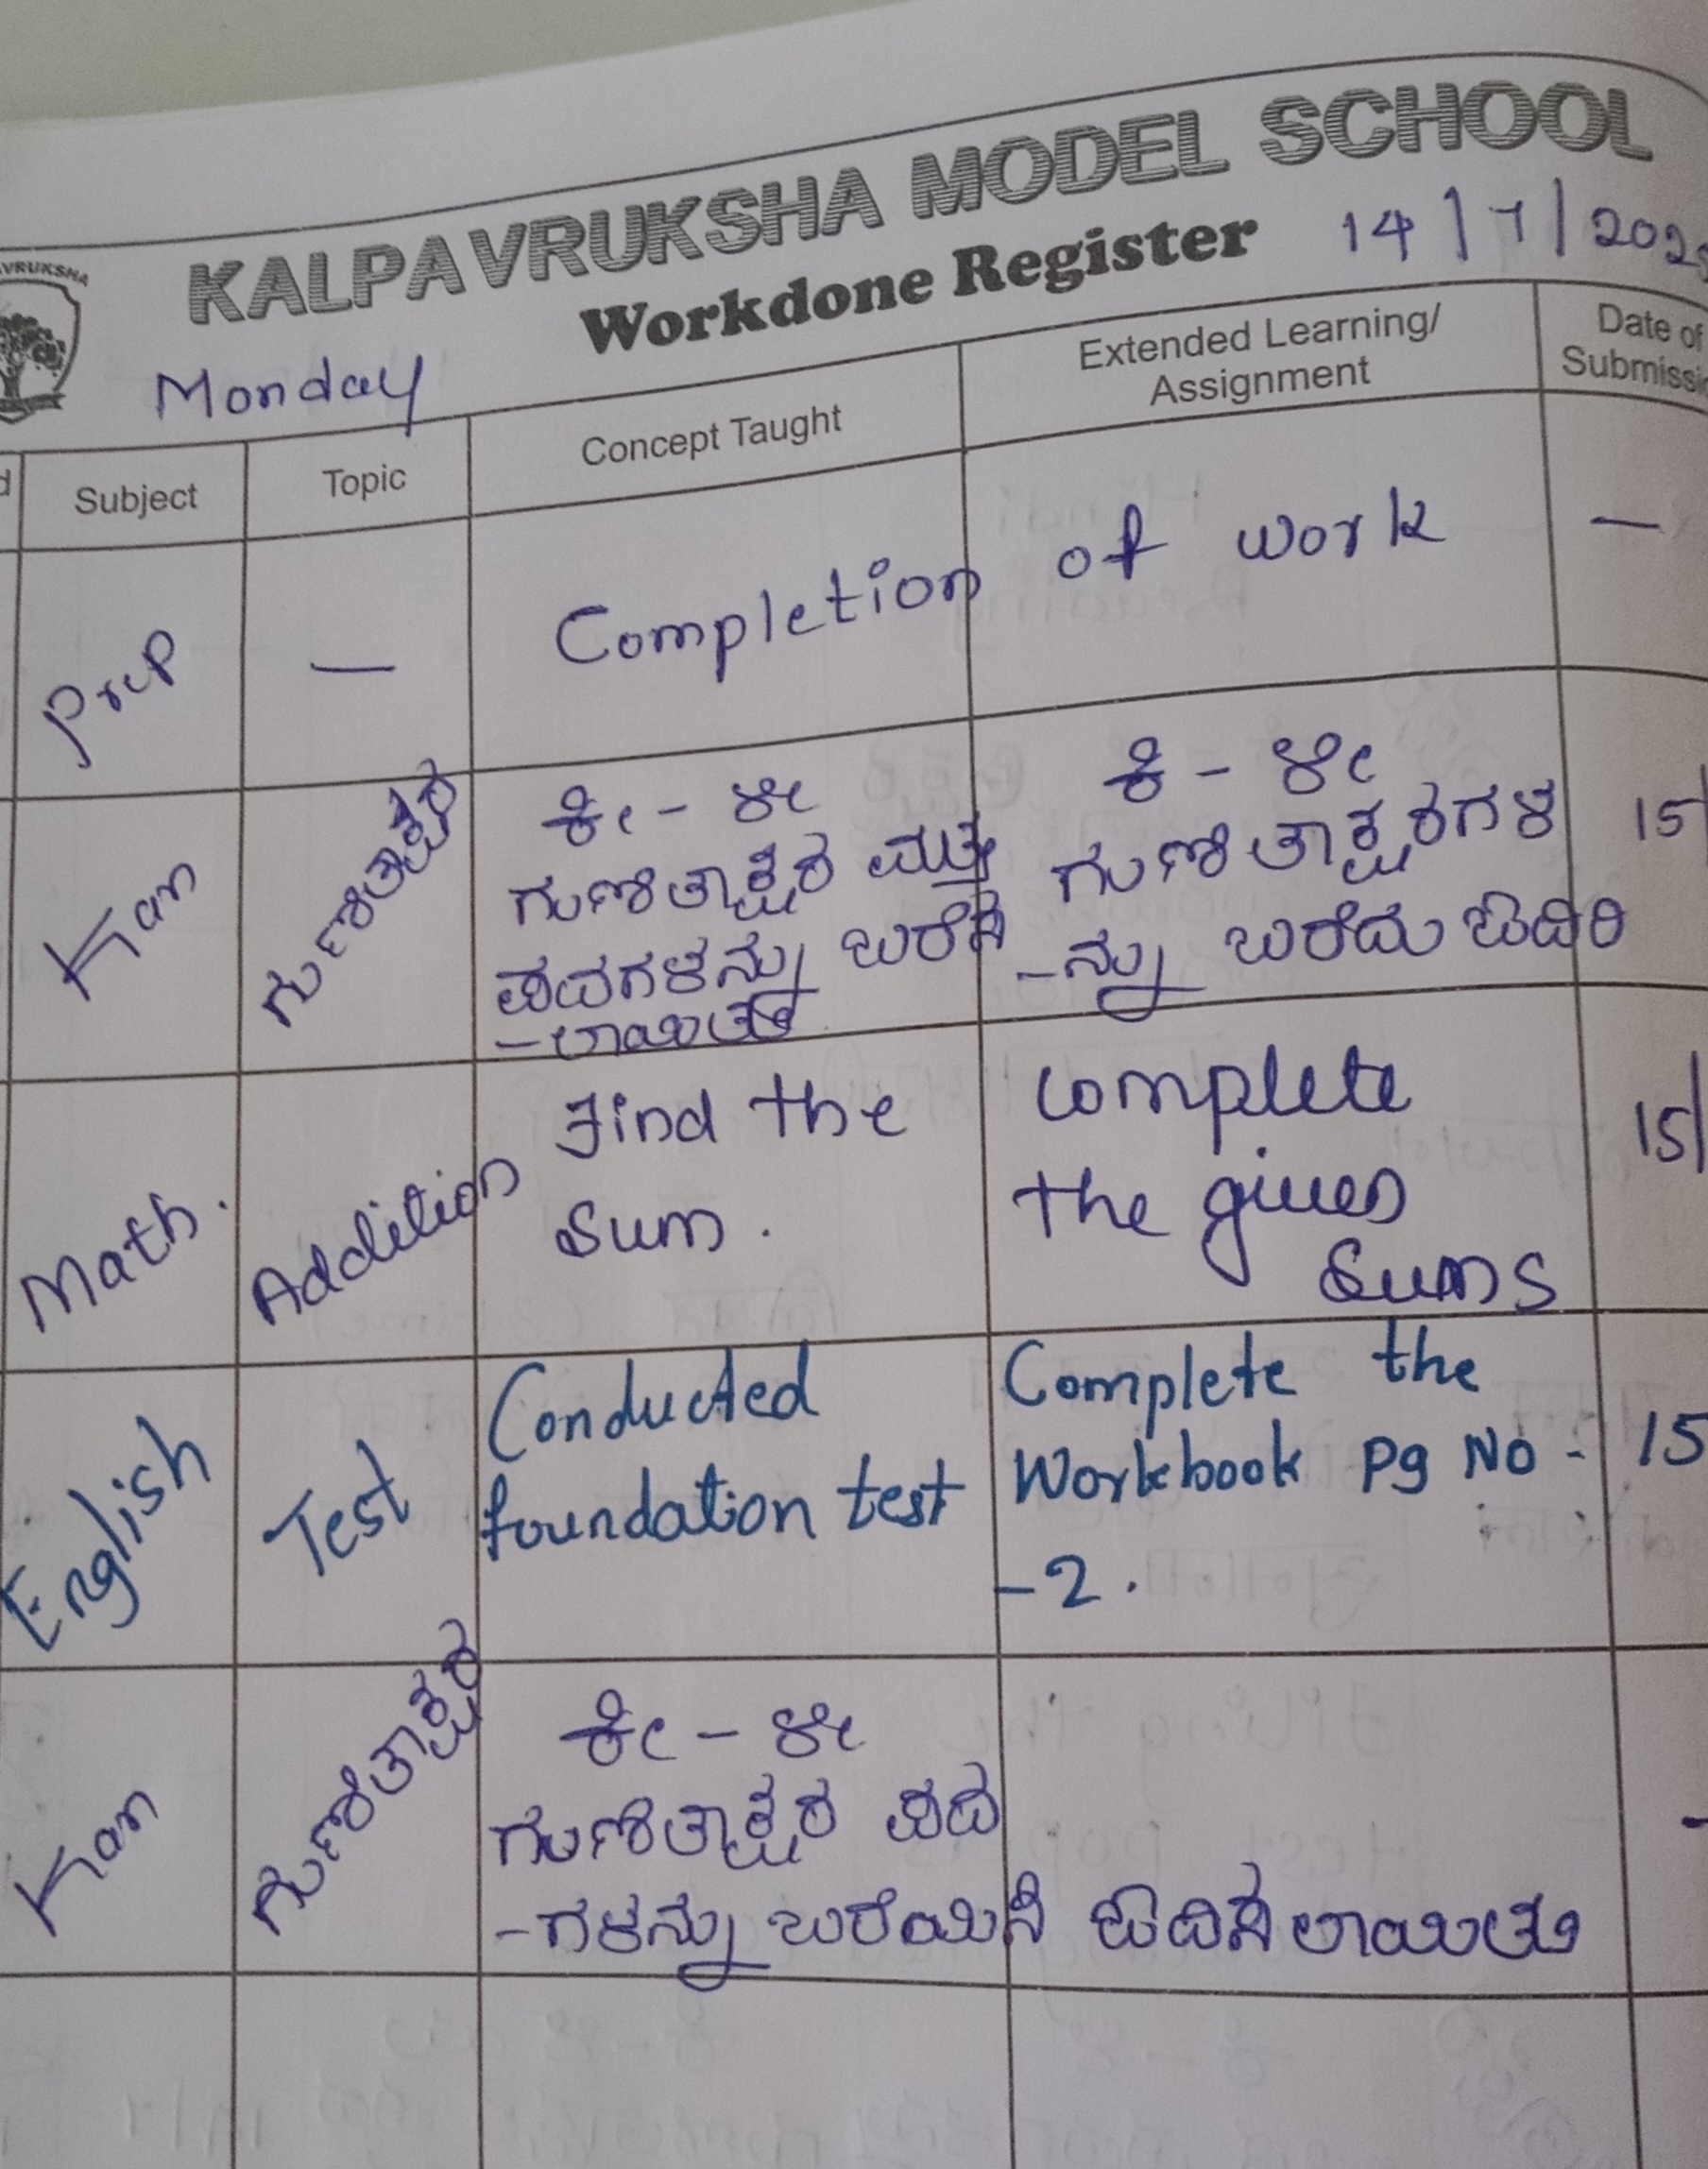 KALPAVRUKSHA MODEL SCHOOL
Workdone Register 14/7/202
VRUKSHA
Monday
Subject Topic Concept Taught Extended Learning/
Assignment
Date of
Submissi
Prep
—
Completion of work
—
Kan
ಗುಣಿತಾಕ್ಷರ
ಕೀ - ಳೀ
ಗುಣಿತಾಕ್ಷರ ಮತ್ತು
ಪದಗಳನ್ನು ಬರೆಸ
-ಲಾಯಿತು
ಕಿ - ಳೀ
ಗುಣಿತಾಕ್ಷರಗಳ
-ನ್ನು ಬರೆದು ಓದಿರಿ
15/
Math.
Addition
Find the
Sum.
Complete
the given
Sums
15/
English
Test
Conducted
foundation test
Complete the
Workbook Pg No -
-2.
15
Kan
ಗುಣಿತಾಕ್ಷರ
ಕೀ - ಳೀ
ಗುಣಿತಾಕ್ಷರ ಪದ
-ಗಳನ್ನು ಬರೆಯಿಸಿ ಓದಿಸಲಾಯಿತು
-